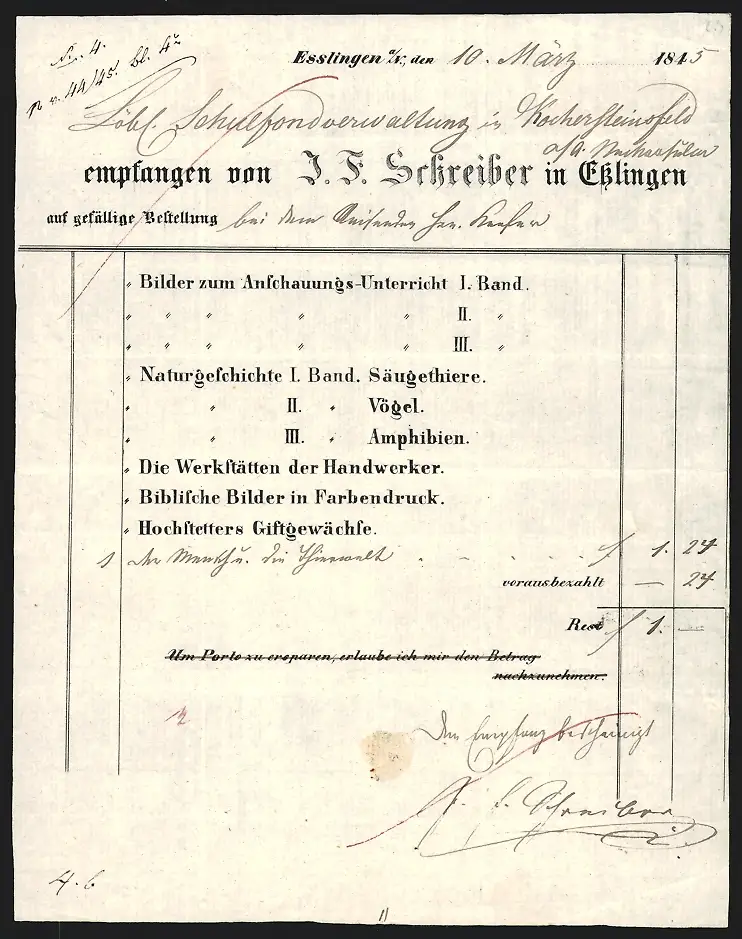 No. 4.
p. 44/45. bl. 4
Esslingen a/N., den 10. März 1845
Löbl. Schulfondverwaltung in Kochersteinsfeld
o/a. Neckarsulm
empfangen von J. F. Schreiber in Eßlingen
auf gefällige Bestellung bei dem Reisenden Hrn. Keefer
〃 Bilder zum Anſchauungs-Unterricht I. Band.
〃 〃 〃 〃 〃 II. 〃
〃 〃 〃 〃 〃 III. 〃
〃 Naturgeſchichte I. Band. Säugethiere.
〃 〃 II. 〃 Vögel.
〃 〃 III. 〃 Amphibien.
〃 Die Werkſtätten der Handwerker.
〃 Bibliſche Bilder in Farbendruck.
〃 Hochſtetters Giftgewächſe.
1 der Mensch u. die Thierwelt f 1. 24
vorausbezahlt — 24
Rest f 1. —
Um Porto zu ersparen, erlaube ich mir den Betrag
nachzunehmen.
12
Den Empfang bescheinigt
J. F. Schreiber
4. 6
11